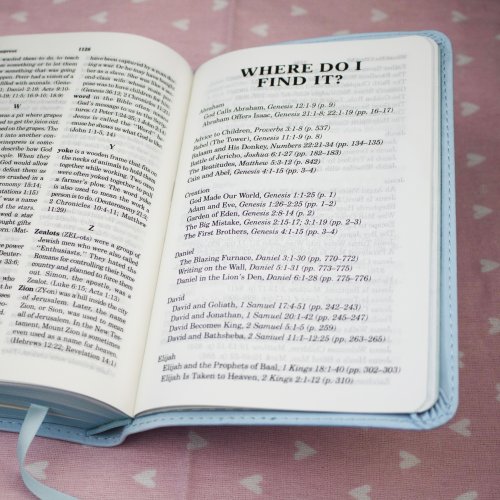 1126
wanted them-to do, to teach
or to let them
something that was
filled with animals.
have been captured by war
ing a war. Or he may have
as a slave. She was a
and-class wife whose
was to have children
(Genesis 36:12; 1 Chronicles
word in the Bible often means
God's message to the
ers (1 Peter 1:24-25; 1 John
Jesus is called the "Word"
cause he shows us what God is like
(John 1:1-5, 14).
Y
yoke is a wooden frame that fits on
the necks of animals to hold them
together while working. Two oxen
were often yoked together to pull
a farmer's plow. The word yoke
is also used to mean the work a
person is to do. (Deuteronomy 21:3;
2 Chronicles 10:4-11; Matthew
11:29)
Z
Zealots (ZEL-ots) were a group of
Jewish men who were also called
"Enthusiasts." They hated the
Romans for controlling their home
country and planned to force them
out. Simon, the apostle, was a
Zealot. (Luke 6:15; Acts 1:13)
Zion (ZY-on) was a hill inside the city
of Jerusalem. Later, the name
Zion, or Sion, was used to mean
all of Jerusalem. In the New Tes-
tament, Mount Zion is sometimes
even used as a name for heaven.
(Hebrews 12:22; Revelation 14:1)
WHERE DO I
FIND IT?
Abraham
God Calls Abraham, Genesis 12:1-9 (p. 9)
Abraham Offers Isaac, Genesis 21:1-8; 22:1-19 (pp. 16–17)
Advice to Children, Proverbs 3:1-8 (p. 537)
Babel (The Tower), Genesis 11:1-9 (p. 8)
Balaam and His Donkey, Numbers 22:21-34 (pp. 134–135)
Battle of Jericho, Joshua 6:1-27 (pp. 182–183)
The Beatitudes, Matthew 5:3-12 (p. 842)
Cain and Abel, Genesis 4:1-15 (pp. 3–4)
Creation
God Made Our World, Genesis 1:1-25 (p. 1)
Adam and Eve, Genesis 1:26–2:25 (pp. 1–2)
Garden of Eden, Genesis 2:8-14 (p. 2)
The Big Mistake, Genesis 2:15-17; 3:1-19 (pp. 2–3)
The First Brothers, Genesis 4:1-15 (pp. 3–4)
Daniel
The Blazing Furnace, Daniel 3:1-30 (pp. 770–772)
Writing on the Wall, Daniel 5:1-31 (pp. 773–775)
Daniel in the Lion's Den, Daniel 6:1-28 (pp. 775–776)
David
David and Goliath, 1 Samuel 17:4-51 (pp. 242–243)
David and Jonathan, 1 Samuel 20:1-42 (pp. 245–247)
David Becomes King, 2 Samuel 5:1-5 (p. 259)
David and Bathsheba, 2 Samuel 11:1–12:25 (pp. 263–265)
Elijah
Elijah and the Prophets of Baal, 1 Kings 18:1-40 (pp. 302–303)
Elijah Is Taken to Heaven, 2 Kings 2:1-12 (p. 310)